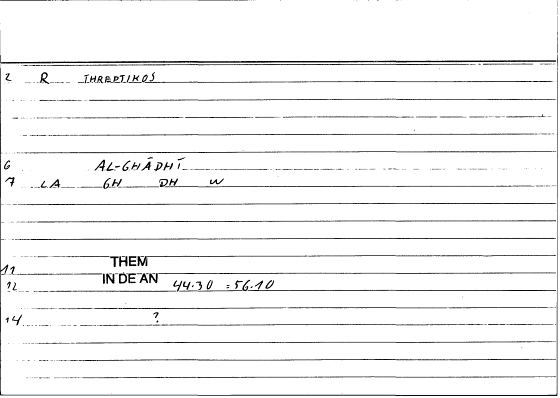 2 R THREPTIKOS
6 AL-GHĀDHĪ
7 LA GH DH W
11 THEM
12 IN DE AN 44.30 =56.10
14 ?